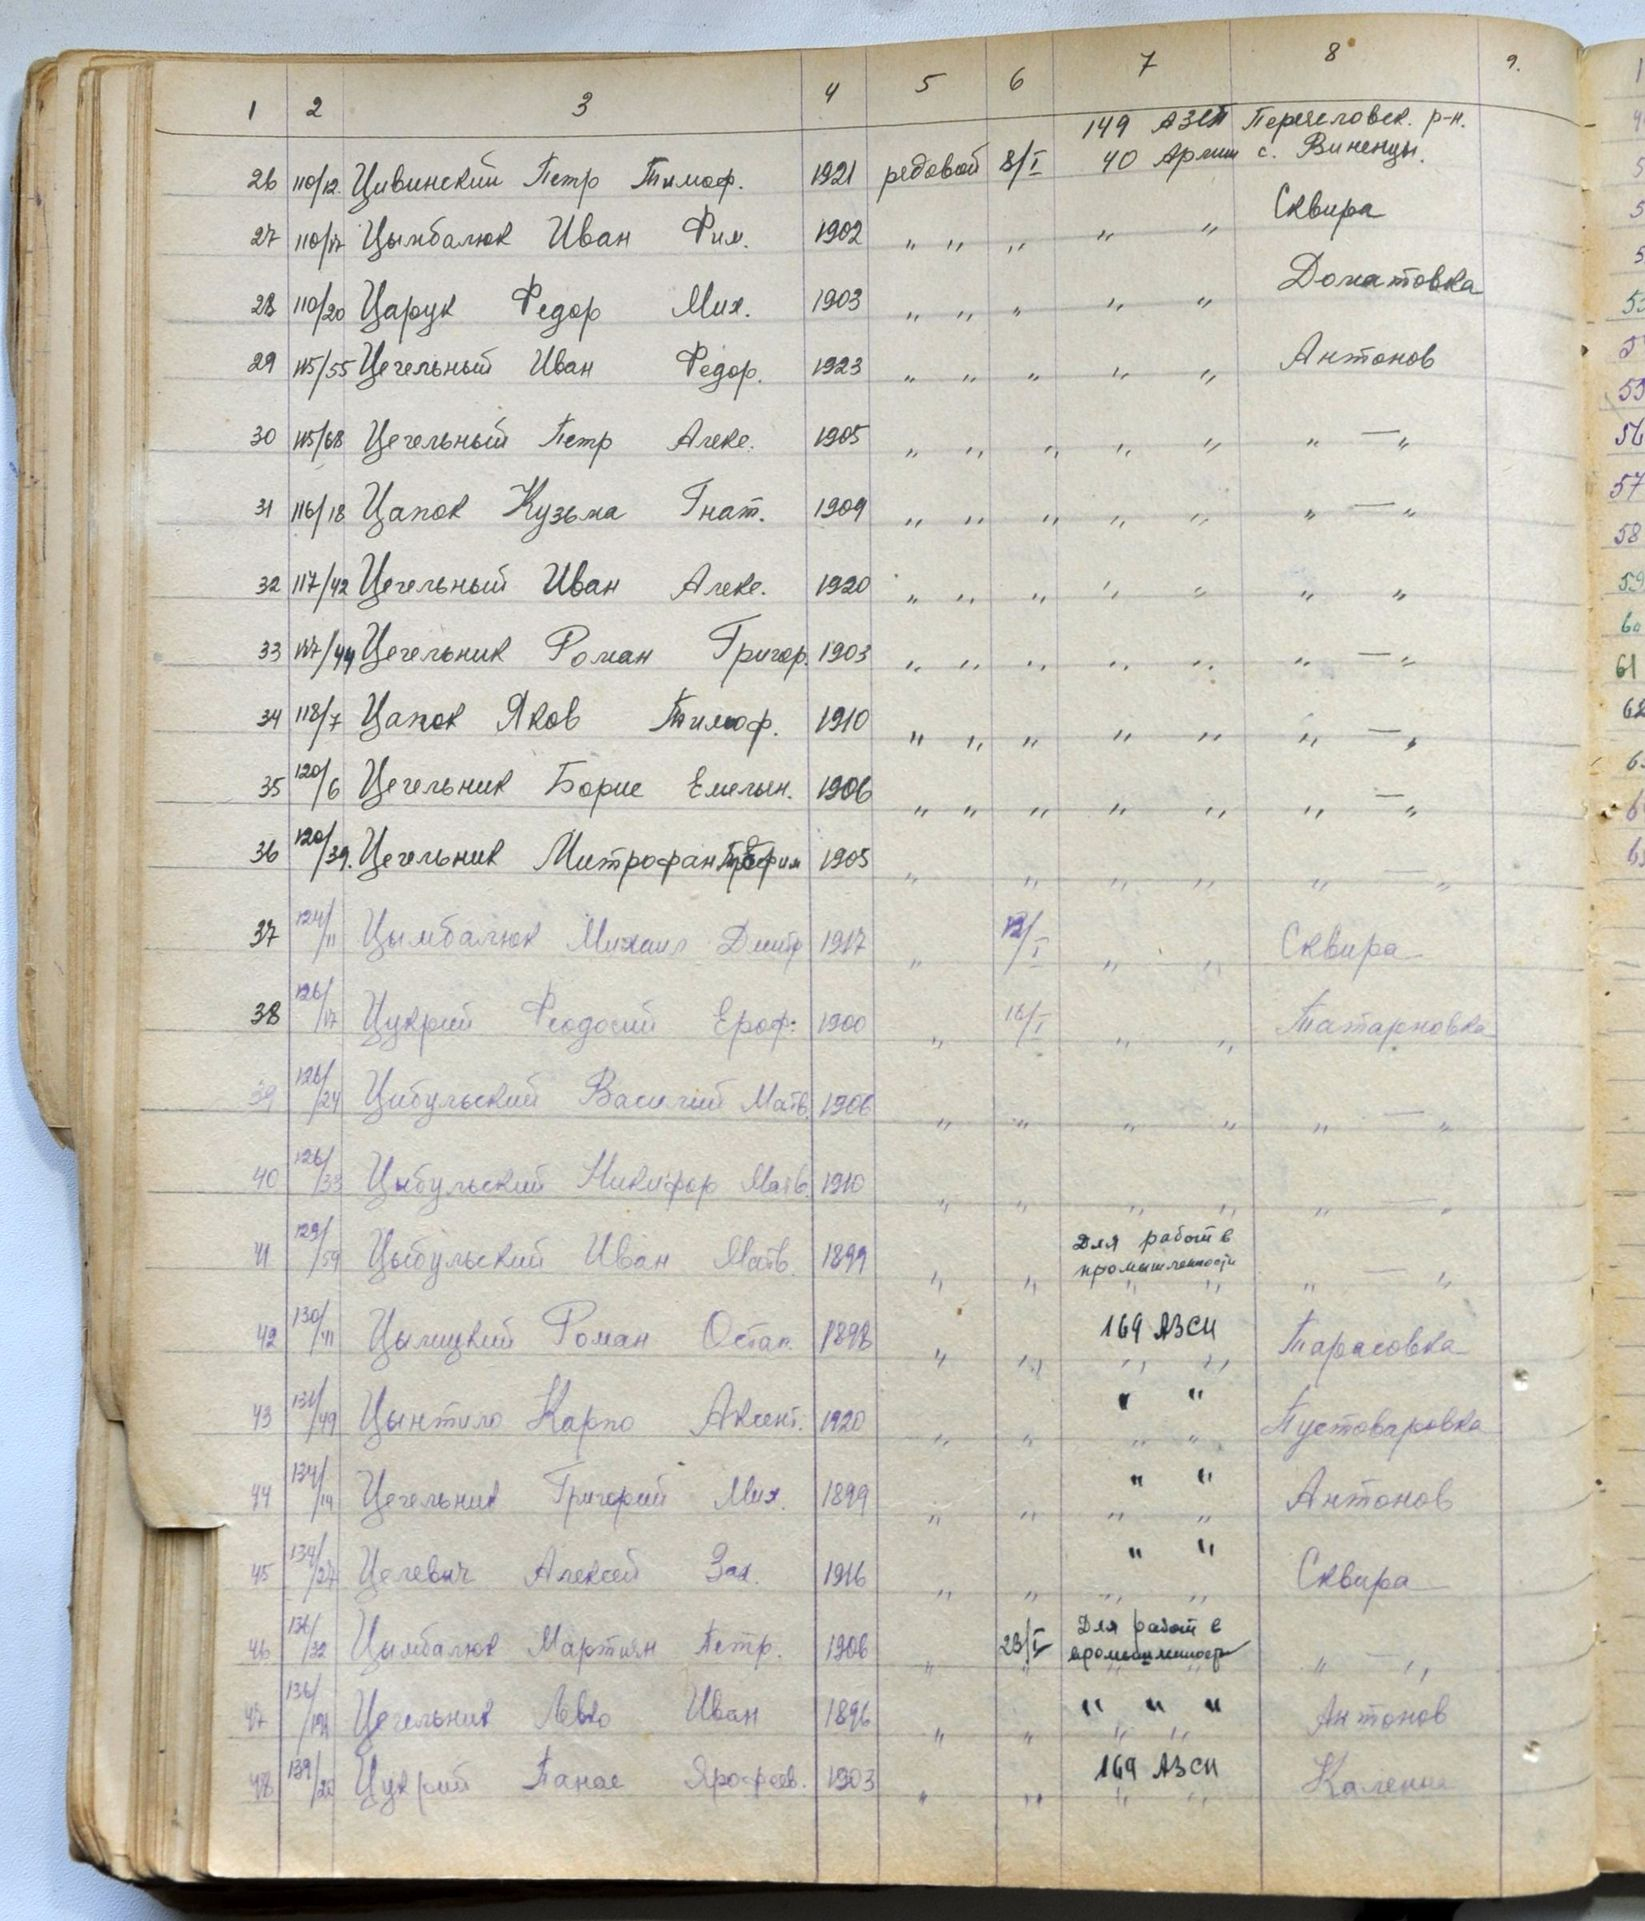 1 2 3 4 5 6 7 8 9.
149 АЗСП Переясловск. р-н.
26 110/12. Цивинский Петр Тимоф. 1921 редовой 8/I 40 Армии с. Виненцы.
27 110/17 Цымбалюк Иван Фил. 1902 " " " " " Сквира
28 110/20 Царук Федор Мих. 1903 " " " " " Донатовка
29 115/55 Цегельный Иван Федор. 1923 " " " " " Антонов
30 115/68 Цегельный Петр Алекс. 1905 " " " " " " — "
31 116/18 Цапок Кузьма Гнат. 1909 " " " " " " — "
32 117/42 Цегельный Иван Алекс. 1920 " " " " " " "
33 117/44 Цегельник Роман Григор. 1903 " " " " " " — "
34 118/7 Цапок Яков Тимоф. 1910 " " " " " " — "
35 120/6 Цегельник Борис Емельян. 1906 " " " " " " — "
36 120/39. Цегельник Митрофан Трофим 1905 " " " " " — "
37 124/11 Цымбалюк Михаил Дмитр 1917 " 12/I " " Сквира
38 126/17 Цукрий Феодосий Ероф. 1900 " 16/I " " Татарновка
39 126/24 Цибульский Василий Матв. 1906 " " " " " — "
40 126/33 Цыбульский Никифор Матв. 1910 " " " " " — "
Для работ в
41 129/59 Цыбульский Иван Матв. 1899 " " промышленности " — "
42 130/41 Цылицкий Роман Остап. 1898 " " 169 АЗСП Тарасовка
43 131/49 Цынтило Карпо Аксент. 1920 " " " " Пустоваровка
44 134/14 Цегельник Григорий Мих. 1899 " " " " Антонов
45 134/27 Целевич Алексей Зах. 1916 " " " " Сквира
Для работ в
46 /32 Цымбалюк Мартиян Петр. 1906 " 23/I промышленность " — "
47 136/ Цегельник Левко Иван 1896 " " " " " Антонов
48 139/20 Цукрий Панас Ярофеев. 1903 " " 169 АЗСП